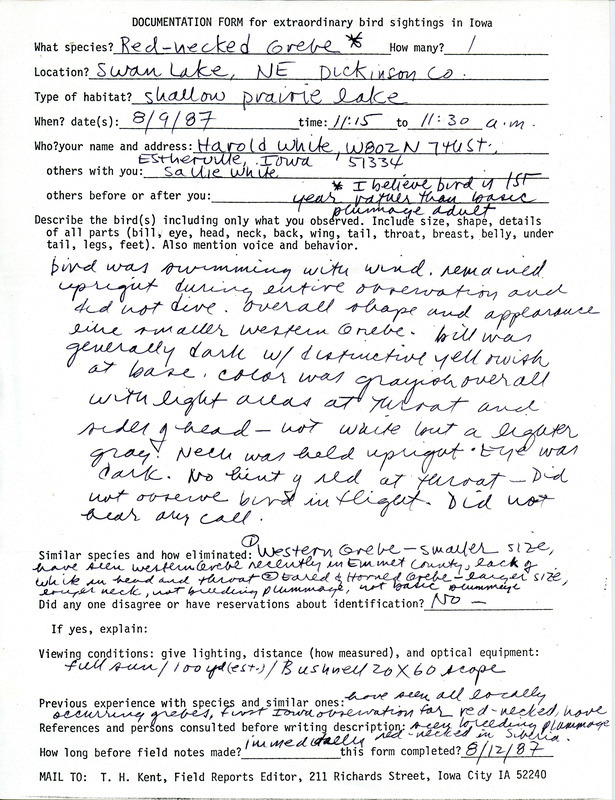 DOCUMENTATION FORM for extraordinary bird sightings in Iowa
What species? Red-necked Grebe * How many? 1
Location? Swan Lake, NE Dickinson Co.
Type of habitat? shallow prairie lake
When? date(s): 8/9/87 time: 11:15 to 11:30 a.m.
Who? your name and address: Harold White, W802 N 7th St.,
Estherville, Iowa 51334
others with you: Sallie White
* I believe bird is 1st
others before or after you: year rather than basic
plummage adult
Describe the bird(s) including only what you observed. Include size, shape, details
of all parts (bill, eye, head, neck, back, wing, tail, throat, breast, belly, under
tail, legs, feet). Also mention voice and behavior.
bird was swimming with wind. remained
upright during entire observation and
did not dive. overall shape and appearance
like smaller western Grebe. bill was
generally dark w/ distinctive yellowish
at base. color was grayish overall
with light areas at throat and
sides of head - not white but a lighter
gray. Neck was held upright. Eye was
dark. No hint of red at throat - Did
not observe bird in flight. Did not
hear any call.
Similar species and how eliminated: ① Western Grebe - smaller size,
have seen western Grebe recently in Emmet County, lack of
white on head and throat ② Eared & Horned Grebe - larger size,
longer neck, not breeding plummage, not basic plummage
Did any one disagree or have reservations about identification? No -
If yes, explain:
Viewing conditions: give lighting, distance (how measured), and optical equipment:
full sun / 100 yd (est.) / Bushnell 20 X 60 scope
Previous experience with species and similar ones: have seen all locally
occurring grebes, first Iowa observation for red-necked, have
References and persons consulted before writing description: seen breeding plummage
red-necked in Siberia.
How long before field notes made? immediately this form completed? 8/12/87
MAIL TO: T. H. Kent, Field Reports Editor, 211 Richards Street, Iowa City IA 52240